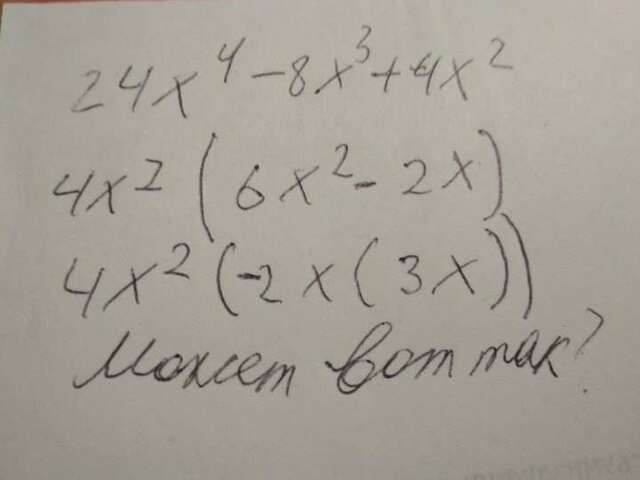 24x⁴-8x³+4x²
4x²(6x²-2x)
4x²(-2x(3x))
Может вот так?